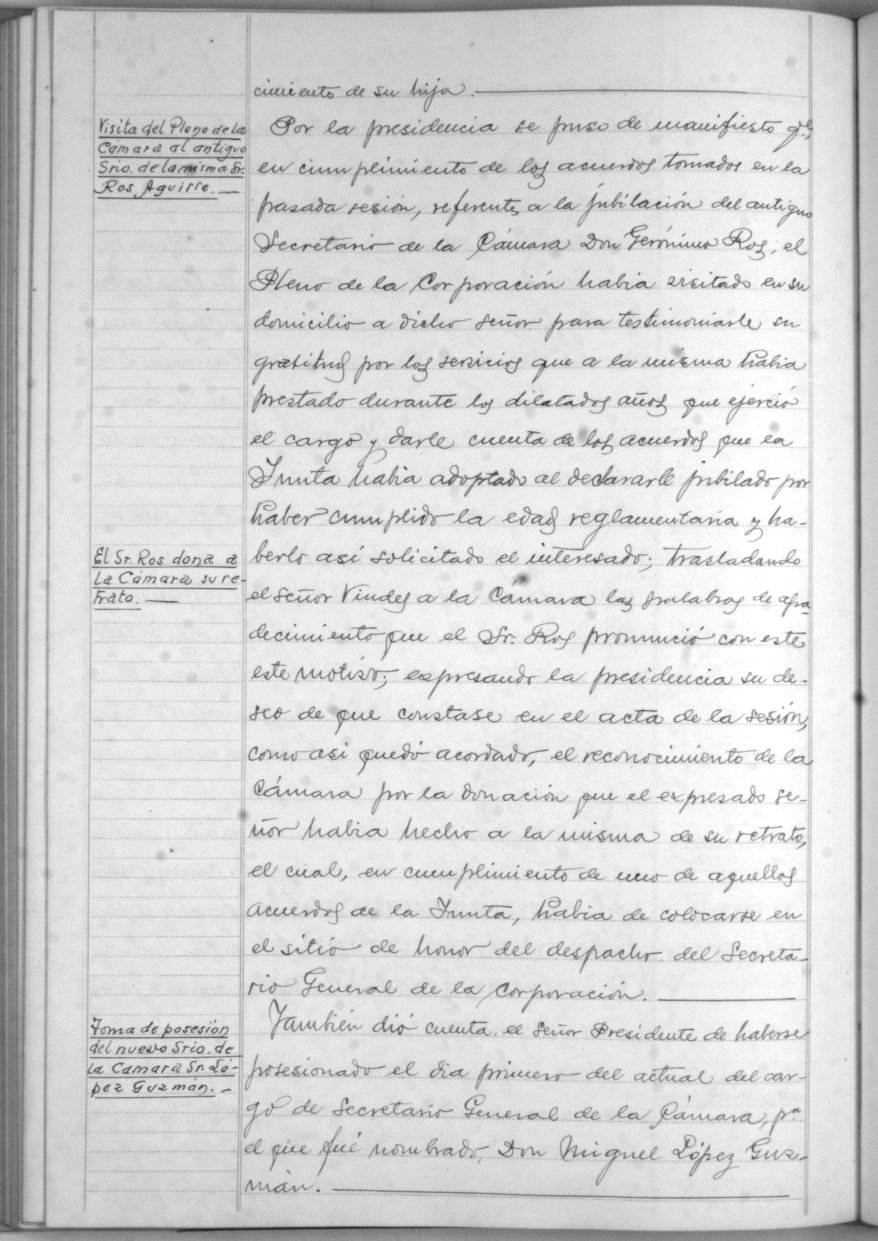 cimiento de su hija.
Visita del Pleno de la
Cámara al antiguo
Srio. de la misma Sr.
Ros Aguirre.
Por la presidencia se puso de manifiesto qe,
en cumplimiento de los acuerdos tomados en la
pasada sesión, referentes a la jubilación del antiguo
Secretario de la Cámara Don Gerónimo Ros, el
Pleno de la Corporación habia visitado en su
domicilio a dicho señor para testimoniarle su
gratitud por los servicios que a la misma habia
prestado durante los dilatados años que ejerció
el cargo y darle cuenta de los acuerdos que la
Junta habia adoptado al declararle jubilado por
haber cumplido la edad reglamentaria y ha-
El Sr. Ros dona a
la Cámara su re-
trato.
berlo asi solicitado el interesado; trasladando
el señor Viudes a la Cámara las palabras de agra
decimiento que el Sr. Ros pronunció con este
este motivo; expresando la presidencia su de-
seo de que constase en el acta de la sesión,
como asi quedó acordado, el reconocimiento de la
Cámara por la donación que el expresado se-
ñor habia hecho a la misma de su retrato,
el cual, en cumplimiento de uno de aquellos
acuerdos de la Junta, habia de colocarse en
el sitio de honor del despacho del Secreta-
rio General de la Corporación.
Toma de posesión
del nuevo Srio. de
la Camara Sr. Ló-
pez Guzmán.
También dió cuenta el Señor Presidente de haberse
posesionado el dia primero del actual del car-
go de Secretario General de la Cámara, pa
el que fué nombrado, Don Miguel López Guz-
mán.